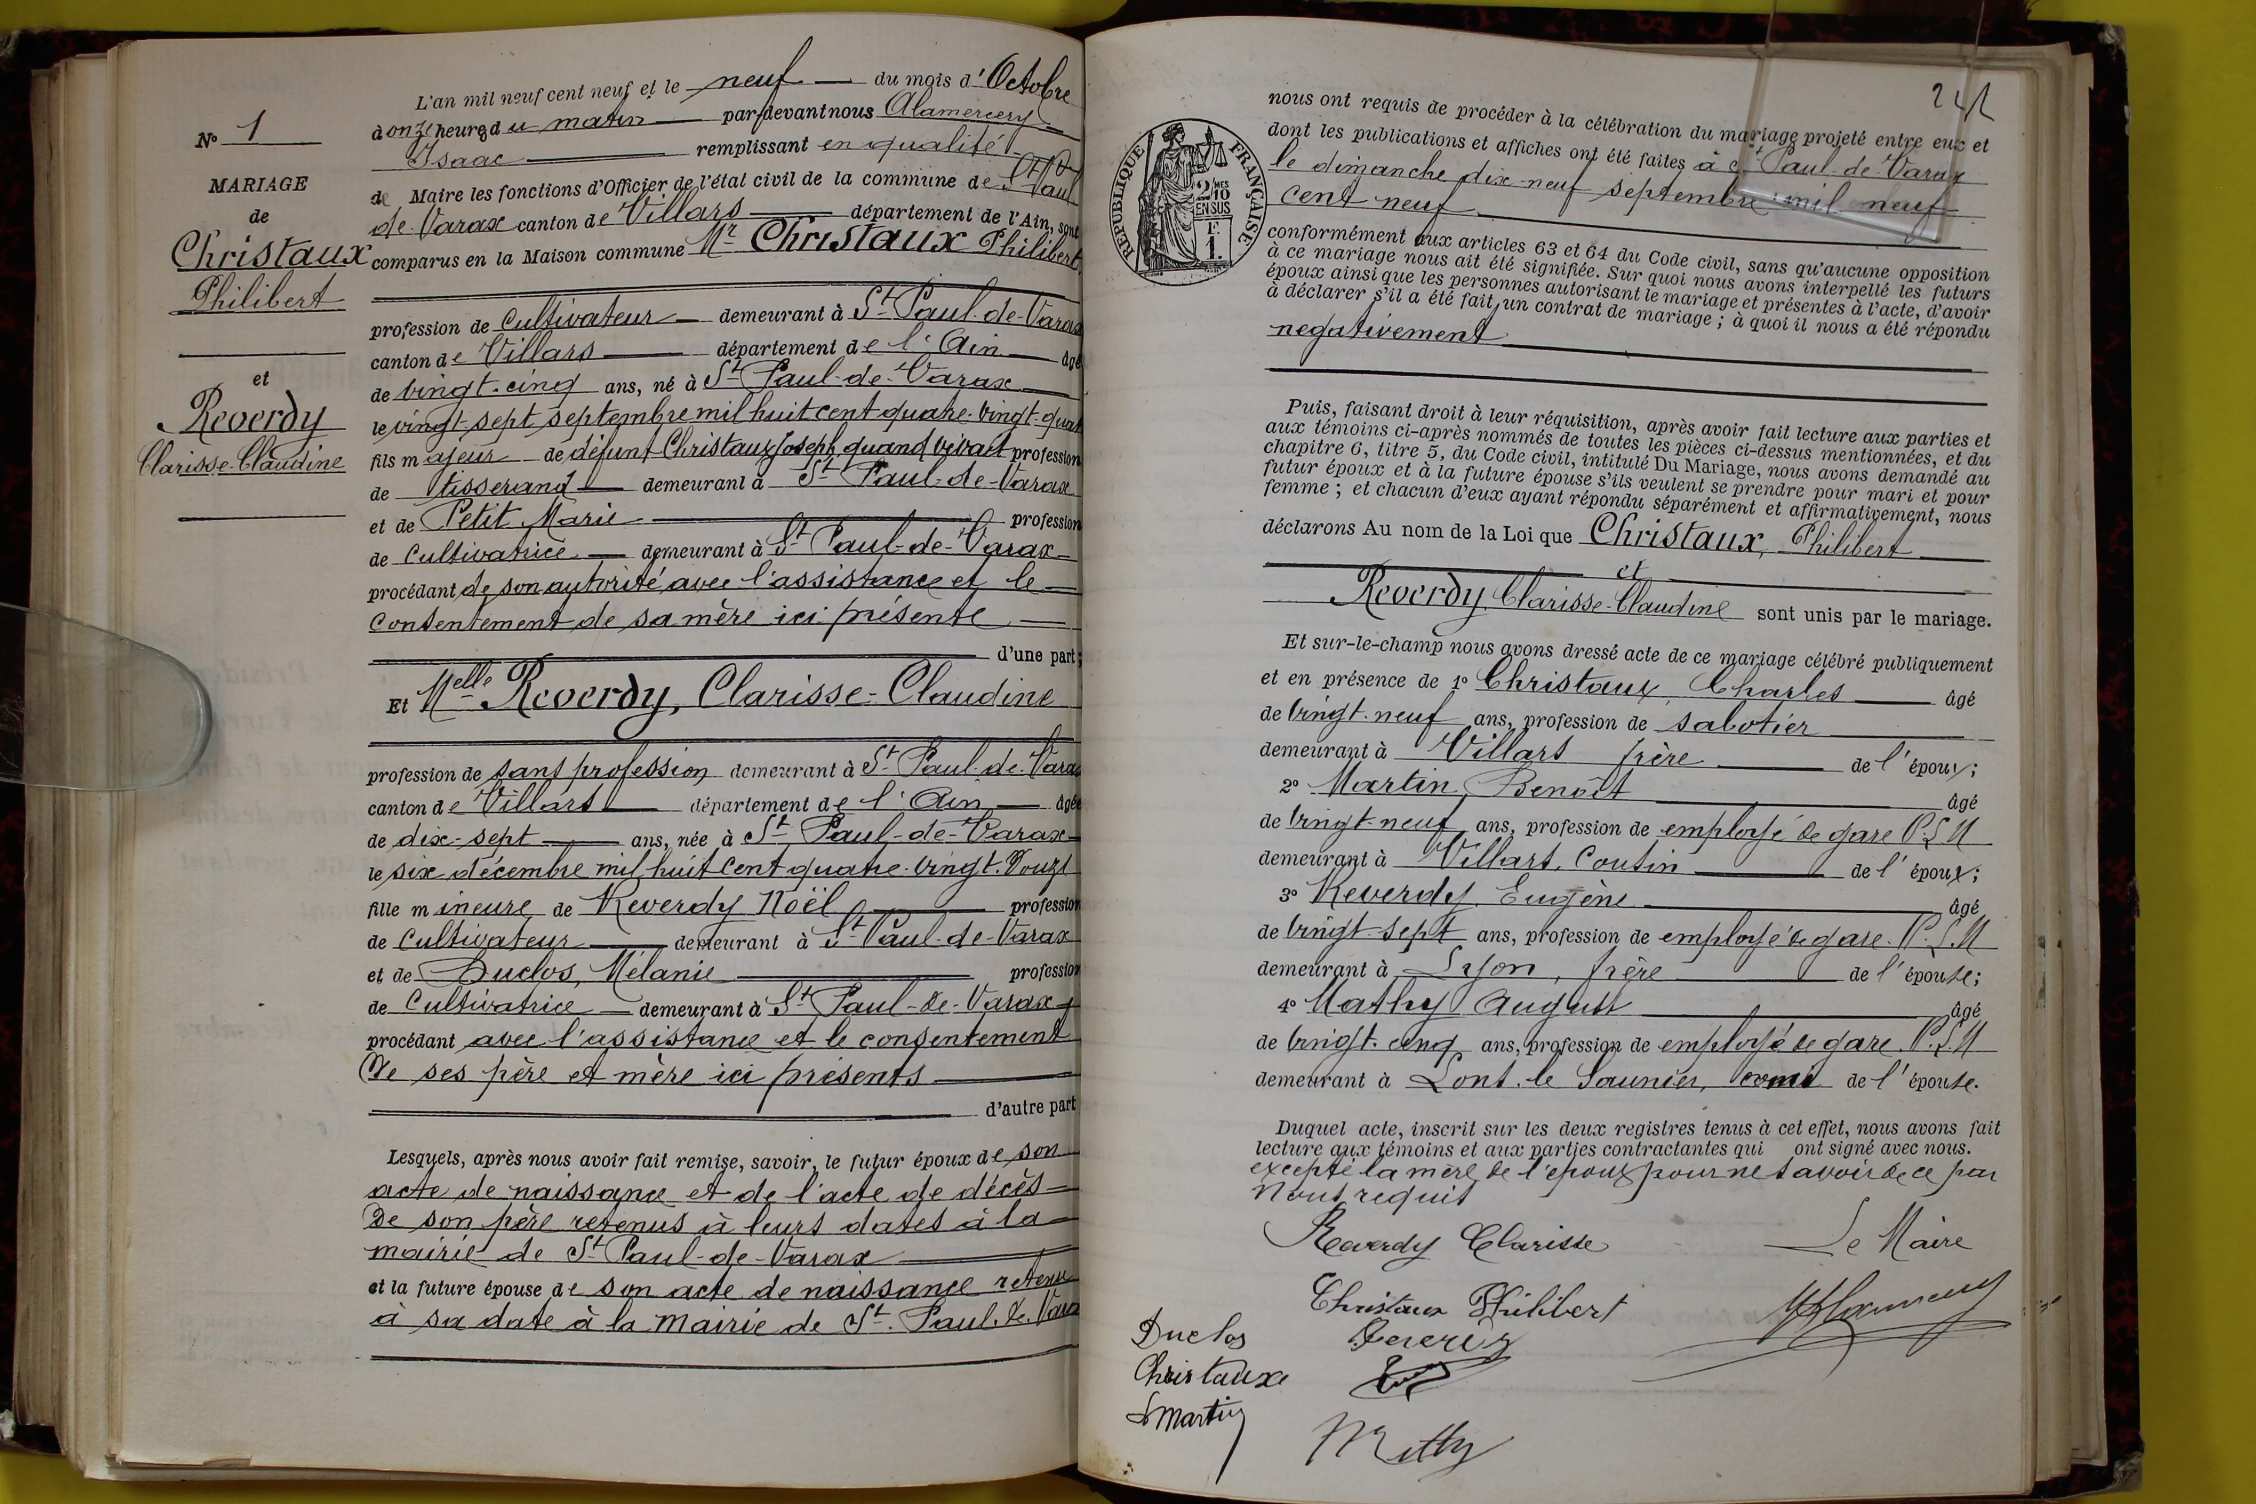 N° 1
MARIAGE
de
Christaux
Philibert
et
Reverdy
Clarisse-Claudine
L'an mil neuf cent neuf et le neuf du mois d'Octobre
à onze heures du matin par-devant nous Alamercery
Isaac remplissant en qualité
de Maire les fonctions d'Officier de l'état civil de la commune de St Paul
de Varax canton de Villars département de l'Ain, sont
comparus en la Maison commune Mr Christaux Philibert
profession de Cultivateur demeurant à St Paul-de-Varax
canton de Villars département de l'Ain âgé
de vingt-cinq ans, né à St Paul-de-Varax
le vingt-sept septembre mil huit cent quatre-vingt-quat
fils majeur de défunt Christaux Joseph quand vivait profession
de tisserand demeurant à St Paul-de-Varax
et de Petit Marie profession
de Cultivatrice demeurant à St Paul-de-Varax
procédant de son autorité avec l'assistance et le
consentement de sa mère ici présente
d'une part;
Et Melle Reverdy, Clarisse-Claudine
profession de sans profession demeurant à St Paul-de-Varax
canton de Villars département de l'Ain âgée
de dix-sept ans, née à St Paul-de-Varax
le six décembre mil huit cent quatre-vingt-douze
fille mineure de Reverdy Noël profession
de Cultivateur demeurant à St Paul-de-Varax
et de Duclos, Mélanie profession
de Cultivatrice demeurant à St Paul-de-Varax
procédant avec l'assistance et le consentement
De ses père et mère ici présents
d'autre part
Lesquels, après nous avoir fait remise, savoir, le futur époux de son
acte de naissance et de l'acte de décès
De son père retenus à leurs dates à la
mairie de St Paul-de-Varax
et la future épouse de son acte de naissance retenu
à sa date à la mairie de St. Paul. de. Vara
241
RÉPUBLIQUE FRANÇAISE
2/10 MES
EN SUS
F.
1.
nous ont requis de procéder à la célébration du mariage projeté entre eux et
dont les publications et affiches ont été faites à St Paul-de-Varax
le dimanche dix-neuf septembre mil neuf
cent neuf
conformément aux articles 63 et 64 du Code civil, sans qu'aucune opposition
à ce mariage nous ait été signifiée. Sur quoi nous avons interpellé les futurs
époux ainsi que les personnes autorisant le mariage et présentes à l'acte, d'avoir
à déclarer s'il a été fait un contrat de mariage; à quoi il nous a été répondu
negativement
Puis, faisant droit à leur réquisition, après avoir fait lecture aux parties et
aux témoins ci-après nommés de toutes les pièces ci-dessus mentionnées, et du
chapitre 6, titre 5, du Code civil, intitulé Du Mariage, nous avons demandé au
futur époux et à la future épouse s'ils veulent se prendre pour mari et pour
femme; et chacun d'eux ayant répondu séparément et affirmativement, nous
déclarons Au nom de la Loi que Christaux, Philibert
et
Reverdy Clarisse-Claudine sont unis par le mariage.
Et sur-le-champ nous avons dressé acte de ce mariage célébré publiquement
et en présence de 1° Christaux Charles âgé
de vingt-neuf ans, profession de sabotier
demeurant à Villars frère de l'époux;
2° Martin, Benoît âgé
de vingt-neuf ans, profession de employé de gare P.L.M
demeurant à Villars, cousin de l'époux;
3° Reverdy Eugène âgé
de vingt-sept ans, profession de employé de gare. P.L.M
demeurant à Lyon, frère de l'épouse;
4° Mathy August âgé
de vingt-cinq ans, profession de employé de gare. P.L.M
demeurant à Lons. le Saunier, de l'épouse.
Duquel acte, inscrit sur les deux registres tenus à cet effet, nous avons fait
lecture aux témoins et aux parties contractantes qui ont signé avec nous.
excepté la mère de l'époux pour ne savoir de ce par
Nous requis
Reverdy Clarisse Le Maire
Christaux Philibert
Duclos
Christauxe
Martin